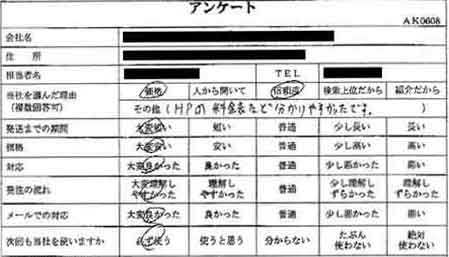 アンケート
AK0608
会社名
住 所
担当者名 TEL
当社を選んだ理由 価格 人から聞いて 信頼感 検索上位だから 紹介だから
(複数回答可) その他(HPの料金表など分かりやすかったです。)
発送までの期間 大変短い 短い 普通 少し長い 長い
価格 大変安い 安い 普通 少し高い 高い
対応 大変良かった 良かった 普通 少し悪かった 悪い
発注の流れ 大変理解しやすかった 理解しやすかった 普通 少し理解しずらかった 理解しずらかった
メールでの対応 大変良かった 良かった 普通 少し悪かった 悪い
次回も当社を使いますか 必ず使う 使うと思う 分からない たぶん使わない 絶対使わない